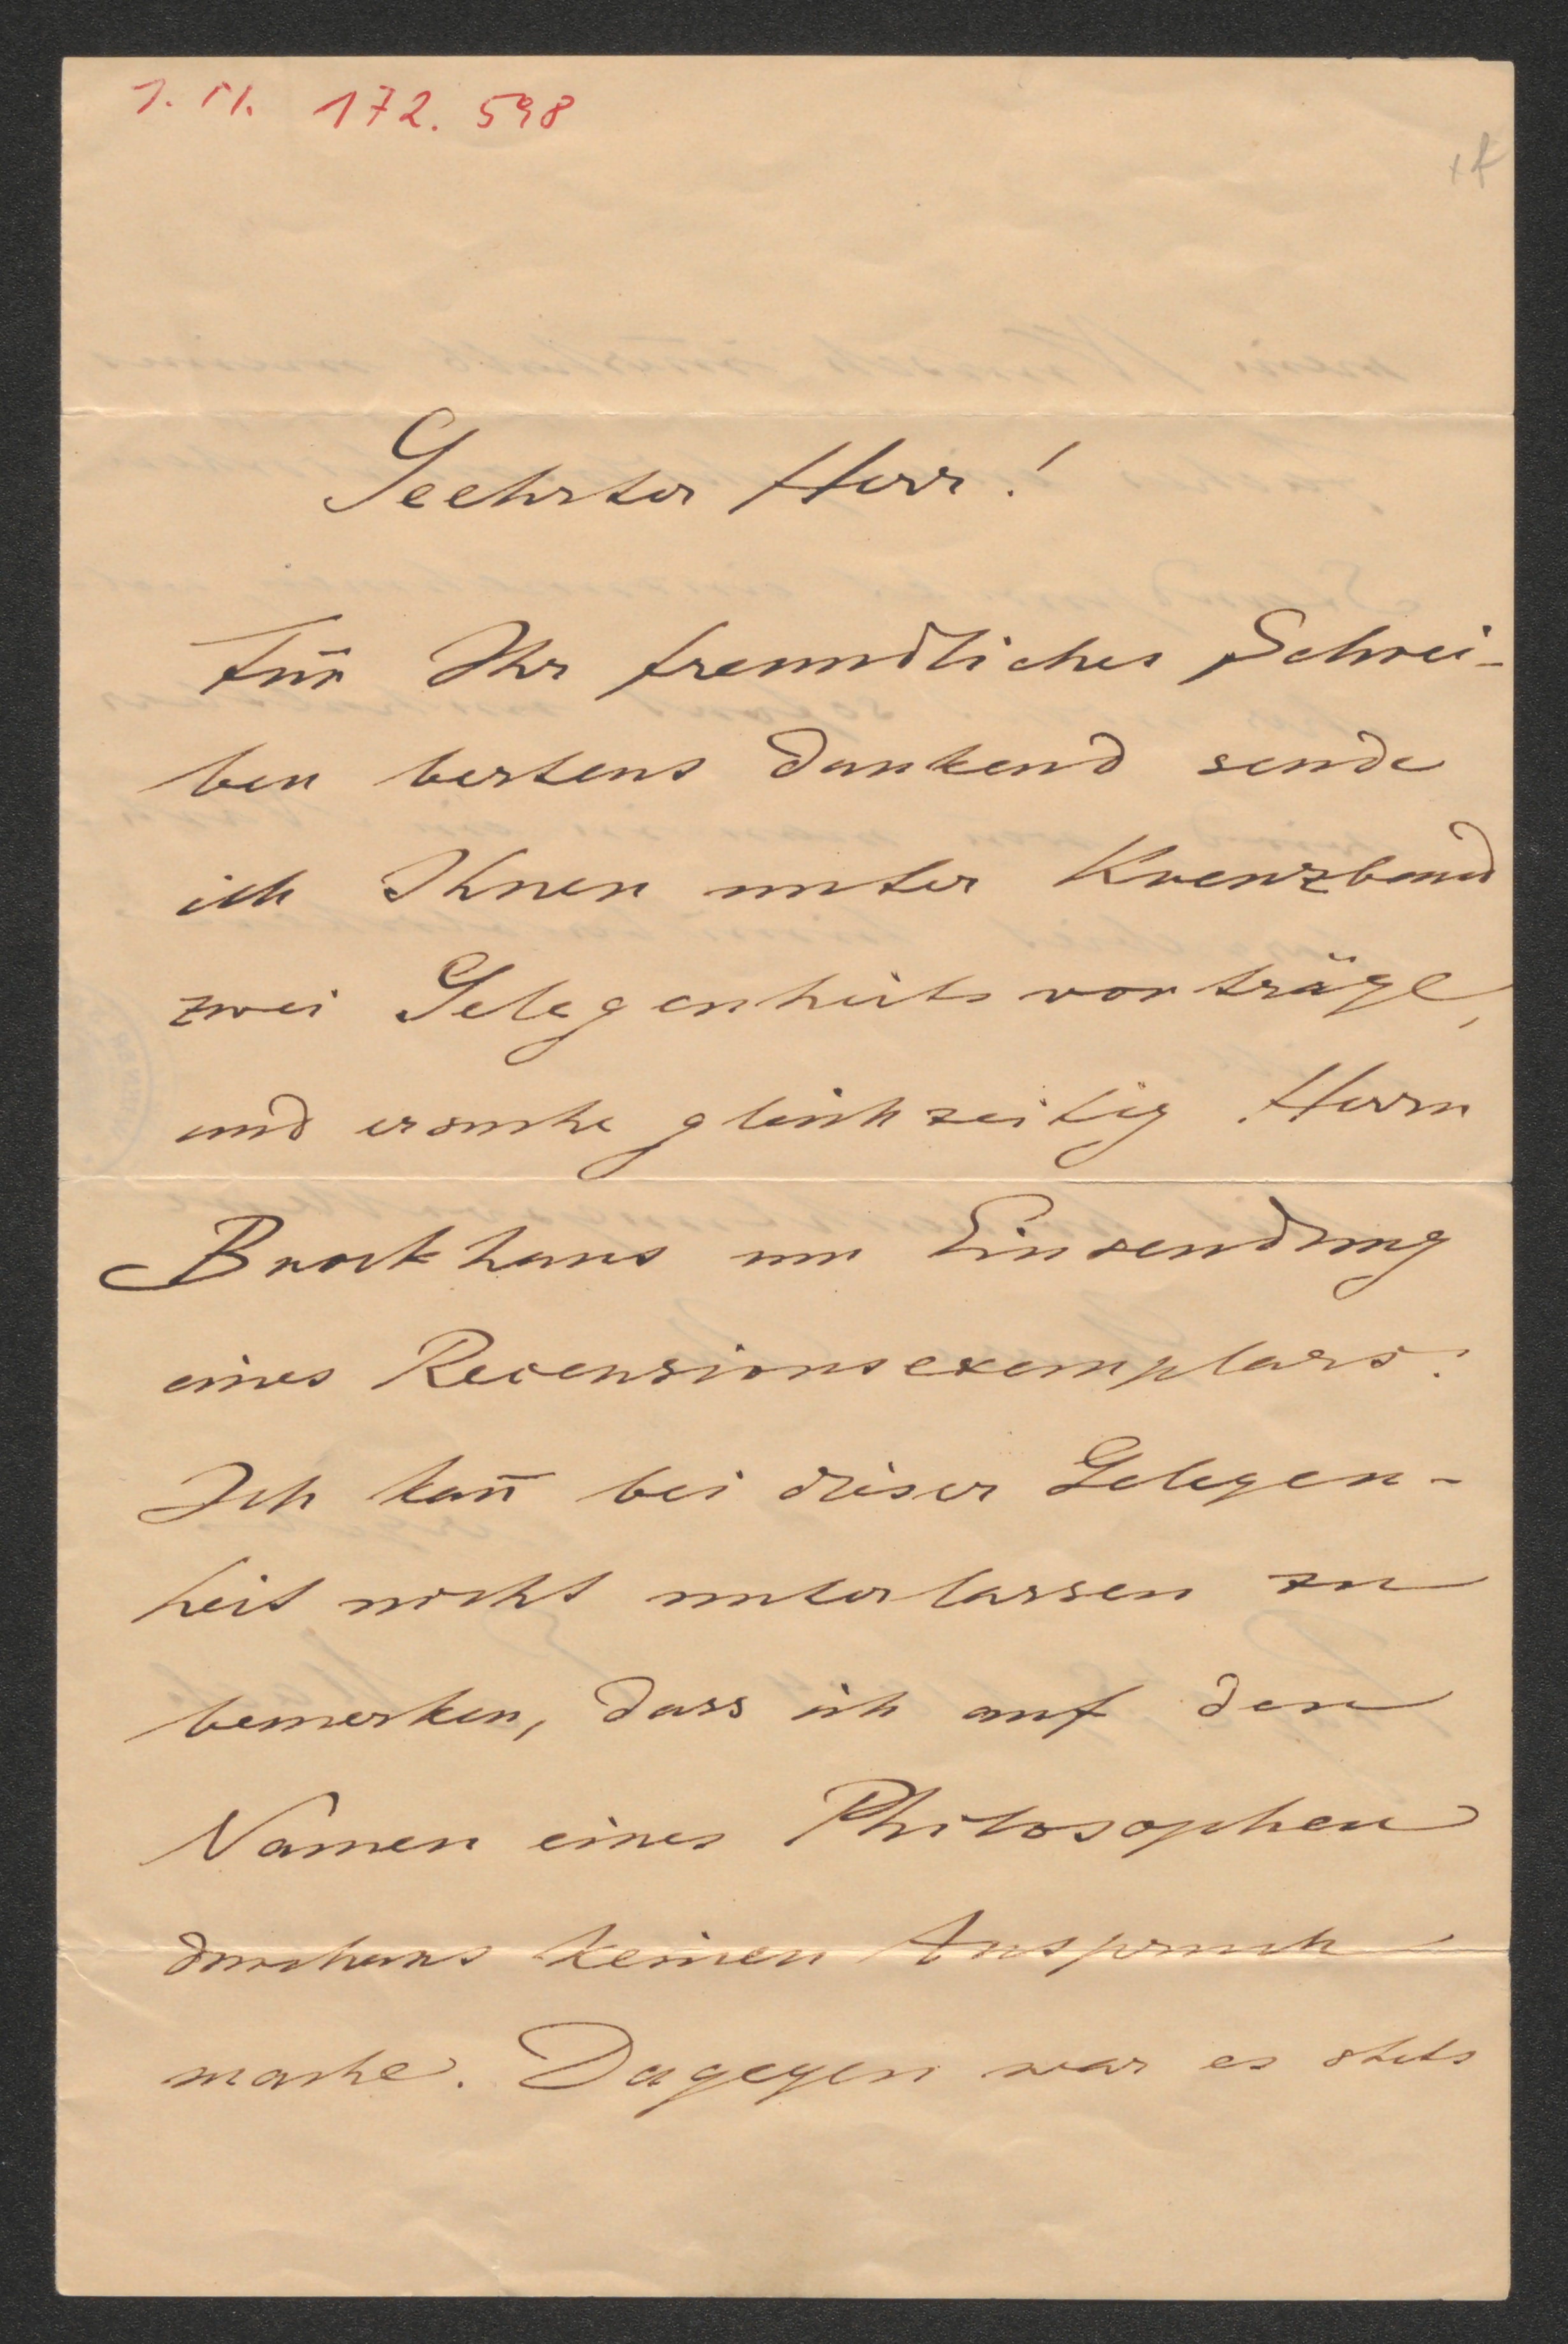 I.N. 172.598
Geehrter Herr!
Für Ihr freundliches Schrei-
ben bestens dankend sende
ich Ihnen unter Kreuzband
zwei Gelegenheitsvorträge,
und ersuche gleichzeitig Herrn
Brockhaus um Einsendung
eines Recensionsexemplars.
Ich kañ bei dieser Gelegen-
heit nicht unterlassen zu
bemerken, dass ich auf den
Namen eines Philosophen
durchaus keinen Anspruch
mache. Dagegen war es stets